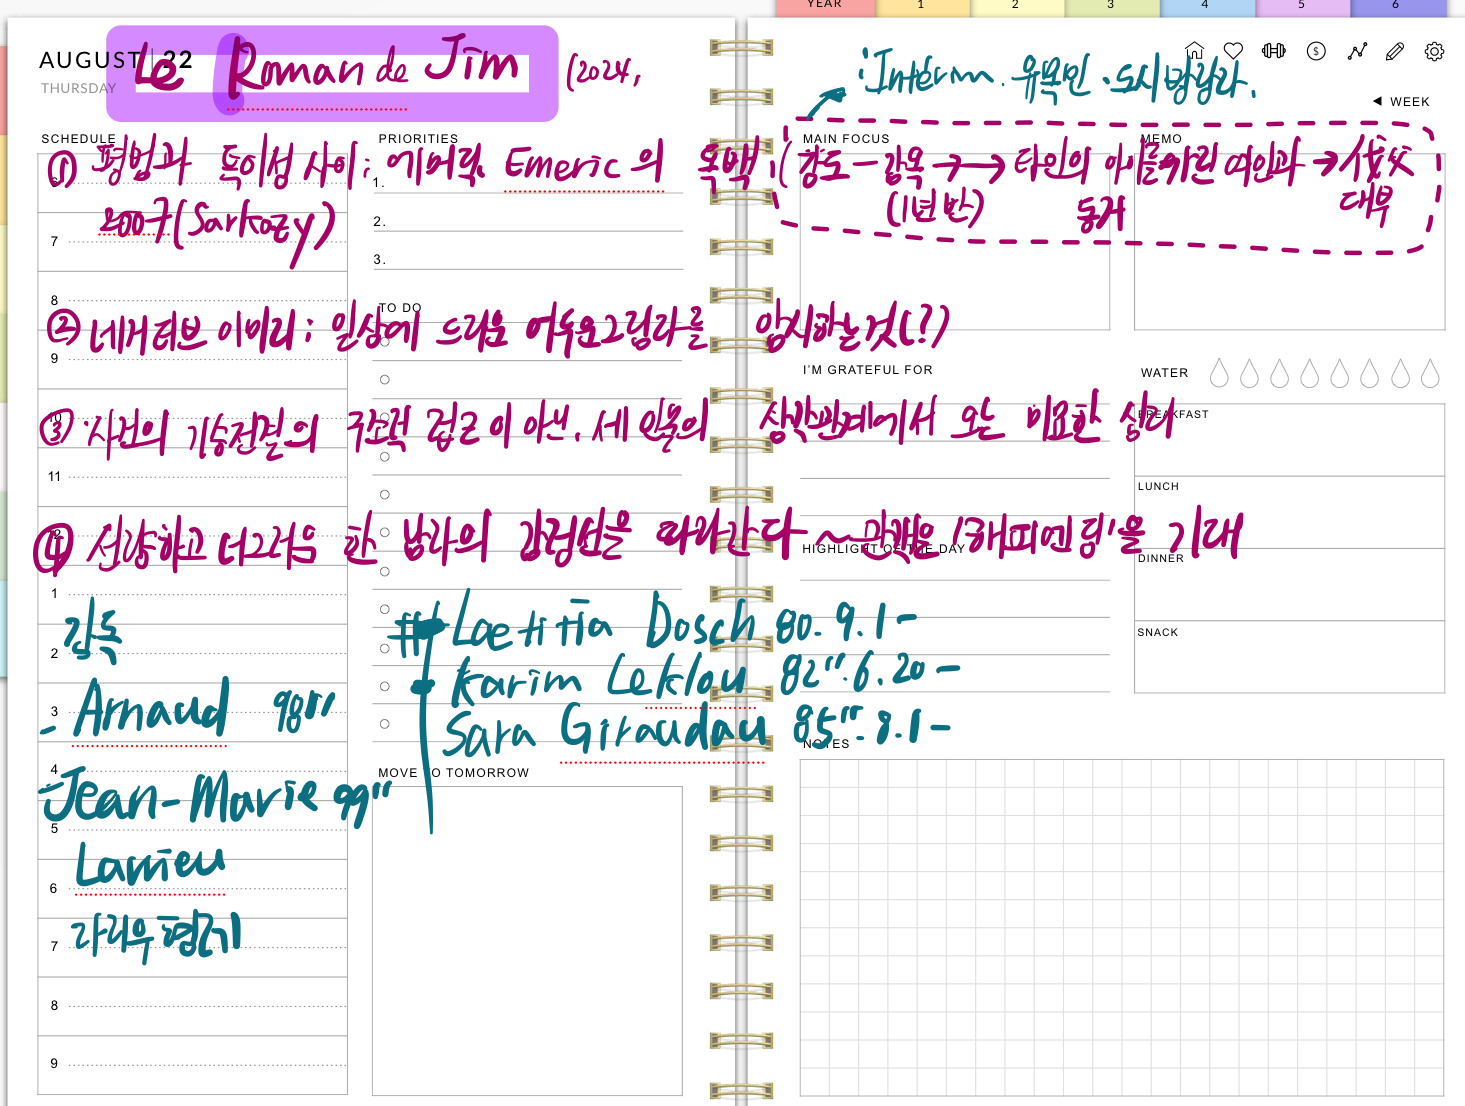 YEAR 1 2 3 4 5 6
AUGUST 22
THURSDAY
Le Roman de Jim (2024,
: Interim. 유목민 · 도시방랑자.
WEEK
SCHEDULE
PRIORITIES
MAIN FOCUS
MEMO
① 평범과 특이성 사이: 에머릭. Emeric의 독백: (강도 – 감옥 → → 타인의 아이를 가진 여인과 →
(1년 반) 동거 대부
2007 (Sarkozy)
6
7
8
9
10
11
12
1
2
3
4
5
6
7
8
9
1.
2.
3.
TO DO
② 네거티브 이미지: 일상에 드리운 어두운 그림자를 암시하는 것(?)
I'M GRATEFUL FOR
WATER
③ 사건의 기승전결의 구조적 접근이 아닌, 세 인물의 상박관계에서 오는 미묘한 심리
BREAKFAST
LUNCH
④ 선량하고 너그러운 한 남자의 감정선을 따라간다 ~ 관객은 '해피엔딩'을 기대
HIGHLIGHT OF THE DAY
DINNER
SNACK
감독
- Arnaud 98""
- Jean-Marie 99""
Larrieu
라리우 형제
Laetitia Dosch 80. 9. 1 –
Karim Leklou 82". 6. 20 –
Sara Giraudau 85". 8. 1 –
NOTES
MOVE TO TOMORROW